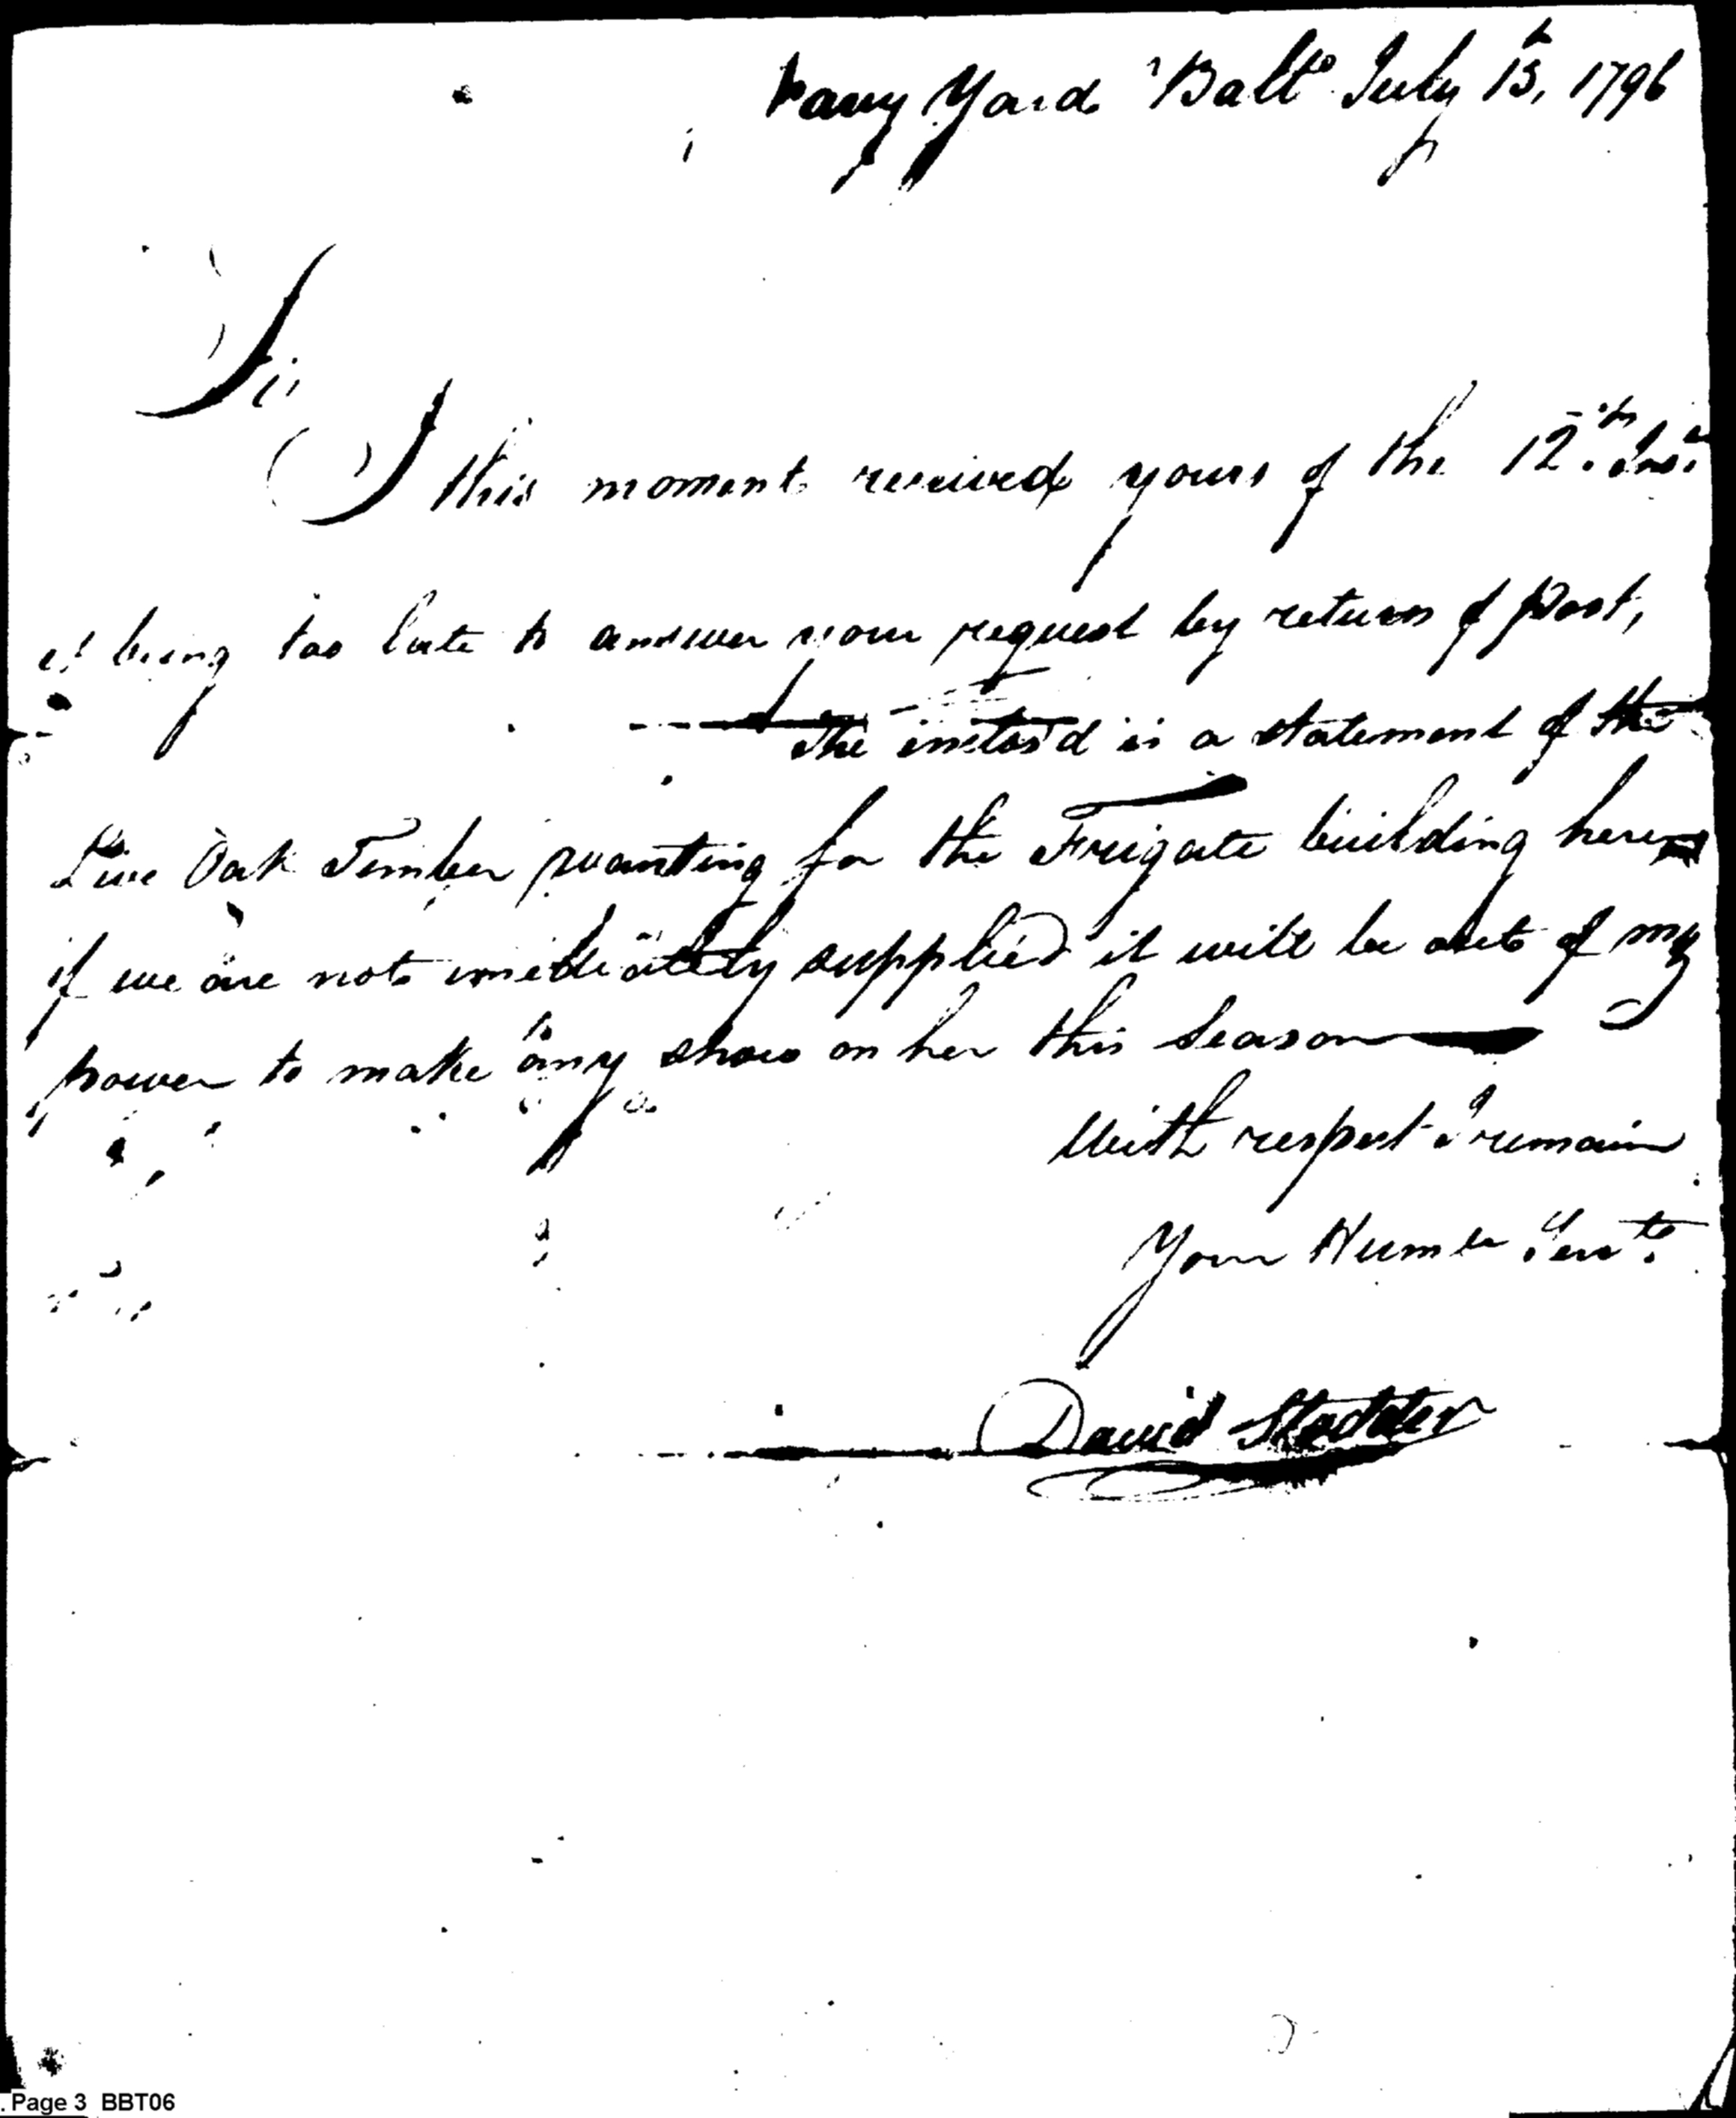 Navy Yard Balto July 15, 1796
Sir
I this moment received yours of the 12th Inst
it being too late to answer your request by return of post,
The inclos'd is a statement of the
Live Oak Timber wanting for the Frigate building here
if we are not imediately supplied it will be out of my
power to make any show on her this Season
With respect I remain
Your Humbe Servt
David Stodder
. Page 3 BBT06